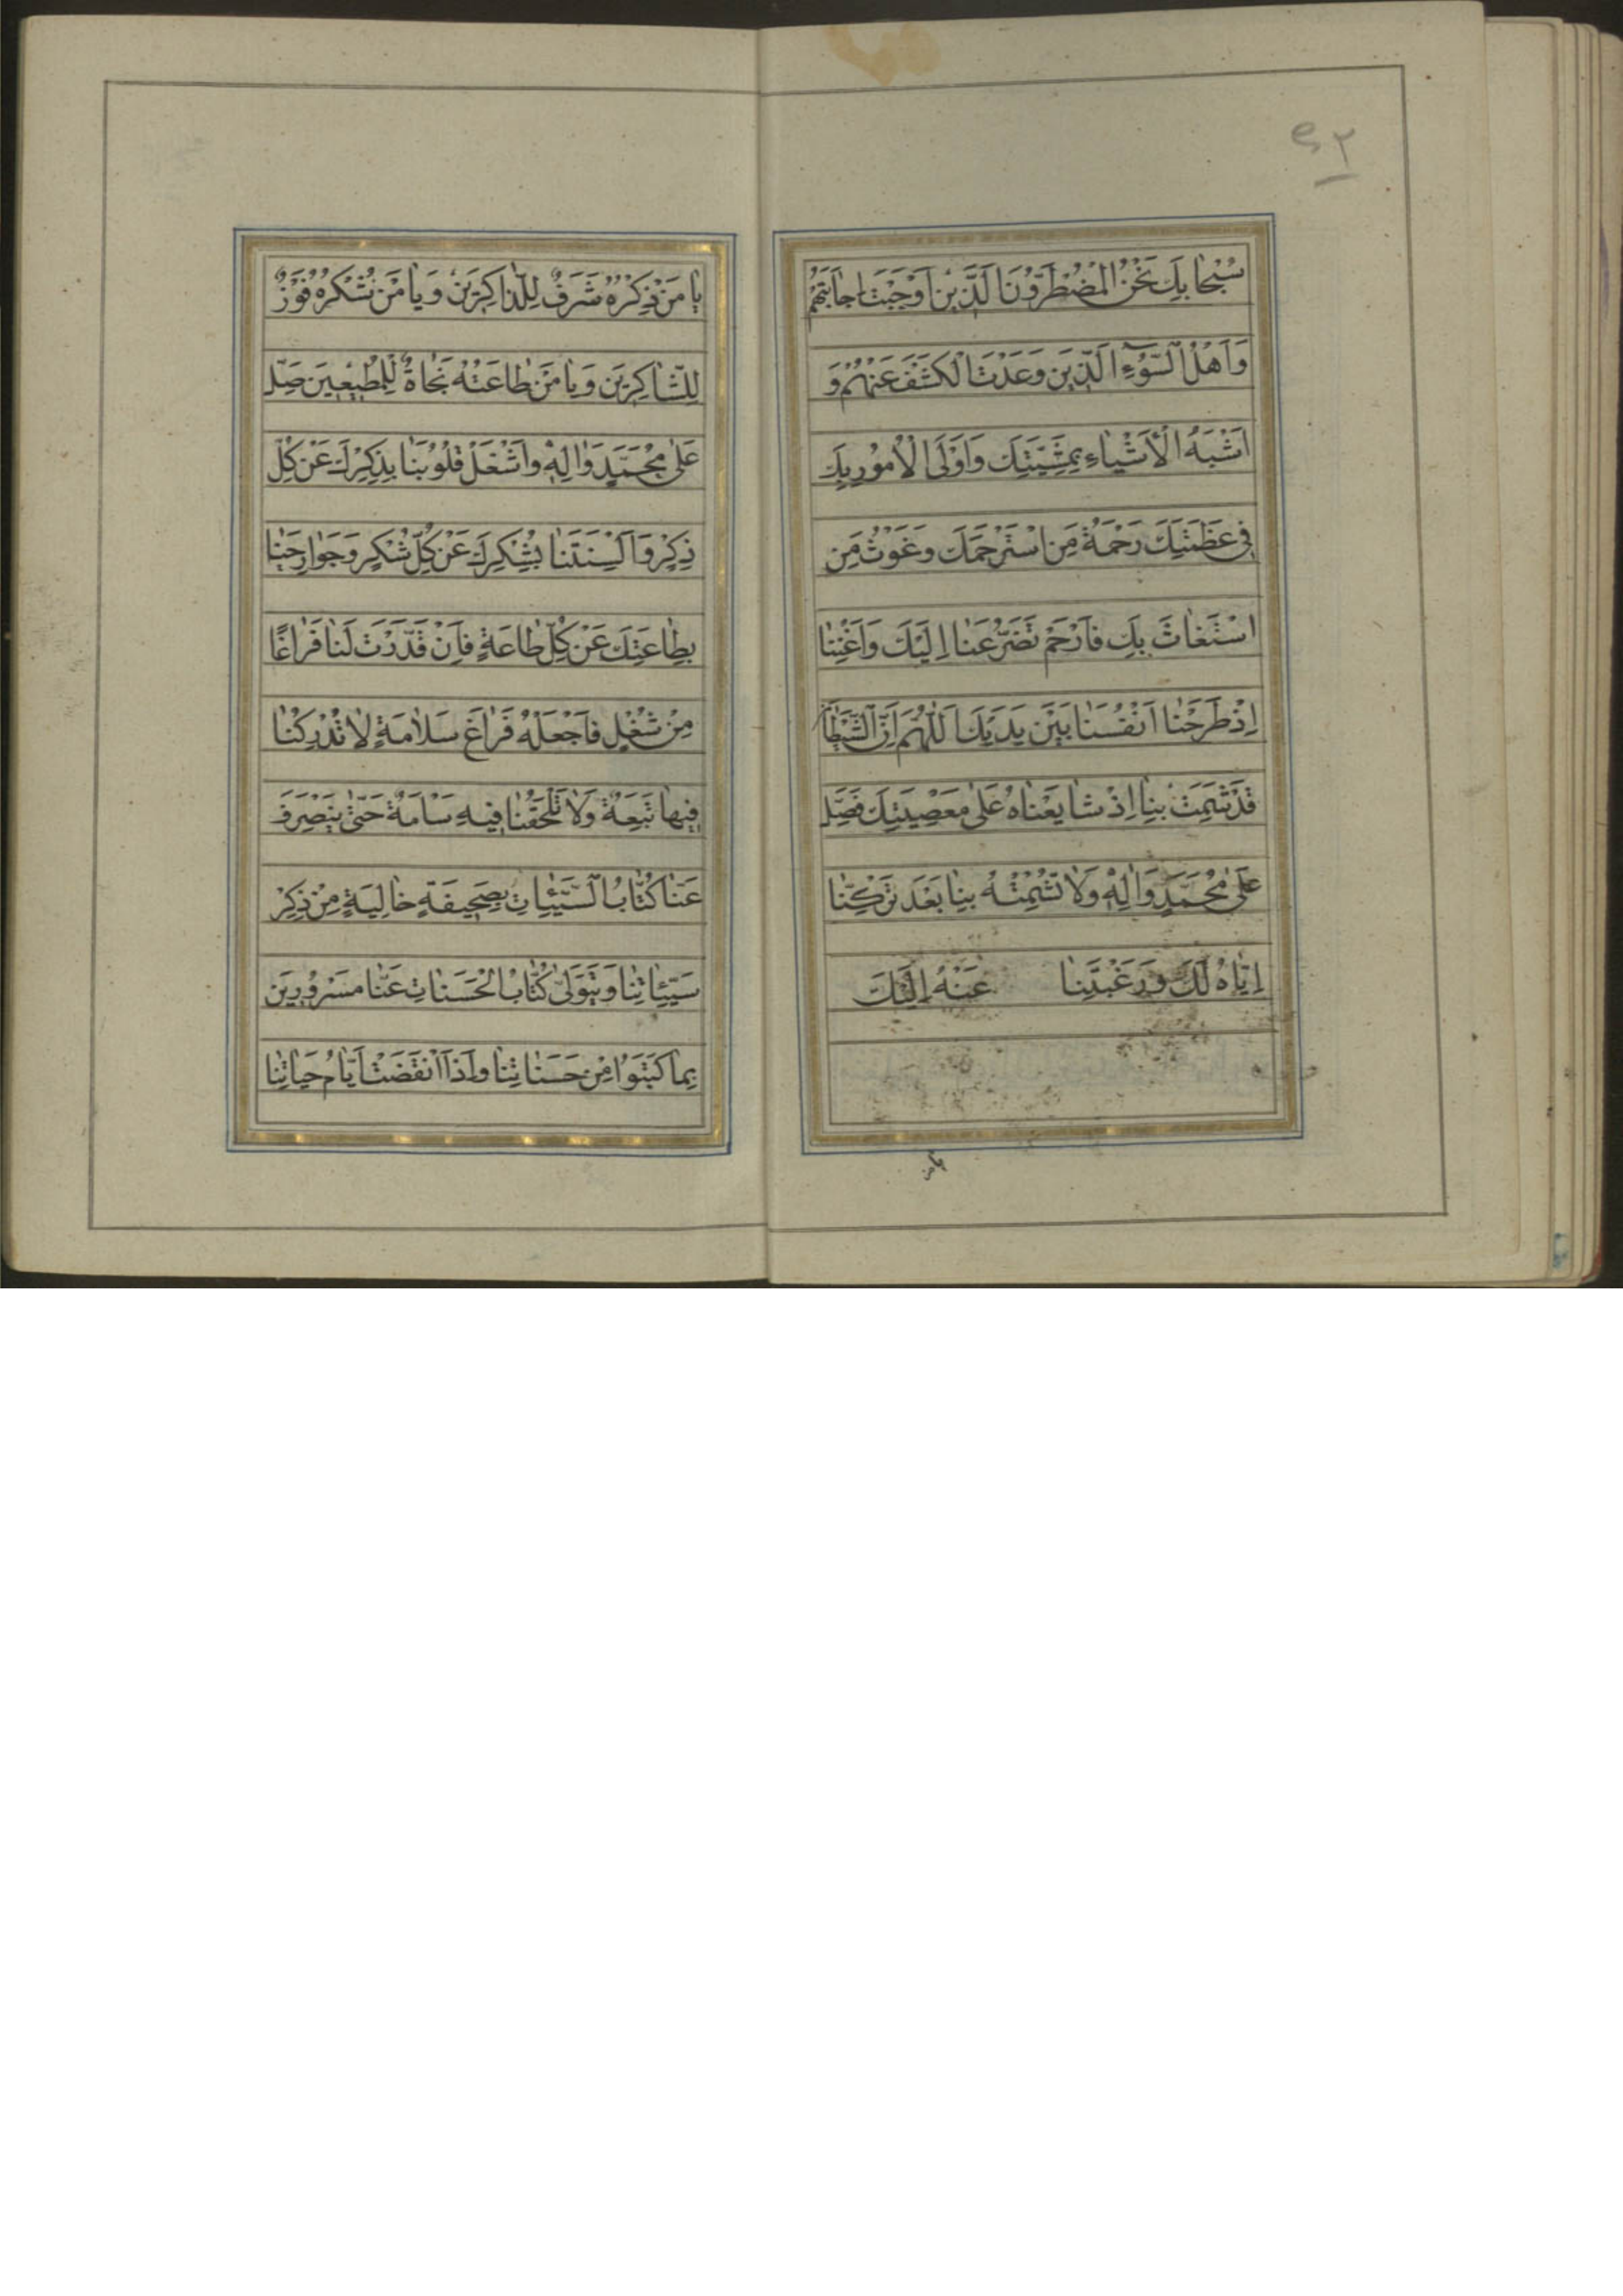 ٤٢
سُبْحانَكَ نَحْنُ الْمُضْطَرُّونَ الَّذِينَ اَوْجَبْتَ اِجابَتَهُمْ
وَاَهْلُ السُّوءِ الَّذِينَ وَعَدْتَ الْكَشْفَ عَنْهُمْ وَ
اَشْبَهُ الْاَشْياءِ بِمَشِيَّتِكَ وَاَوْلَى الْاُمُورِ بِكَ
فِى عَظَمَتِكَ رَحْمَةُ مَنِ اسْتَرْحَمَكَ وَغَوْثُ مَنِ
اسْتَغاثَ بِكَ فَارْحَمْ تَضَرُّعَنا اِلَيْكَ وَاَغْنِنا
اِذْ طَرَحْنا اَنْفُسَنا بَيْنَ يَدَيْكَ اَللّٰهُمَّ اِنَّ الشَّيْطانَ
قَدْ شَمِتَ بِنا اِذْ شايَعْناهُ عَلىٰ مَعْصِيَتِكَ فَصَلِّ
عَلىٰ مُحَمَّدٍ وَاٰلِهِ وَلا تُشْمِتْهُ بِنا بَعْدَ تَرْكِنا
اِيّاهُ لَكَ وَرَغْبَتِنا عَنْهُ اِلَيْكَ
يا مَنْ
يا مَنْ ذِكْرُهُ شَرَفٌ لِلذّاكِرِينَ وَيا مَنْ شُكْرُهُ فَوْزٌ
لِلشّاكِرِينَ وَيا مَنْ طاعَتُهُ نَجاةٌ لِلْمُطِيعِينَ صَلِّ
عَلىٰ مُحَمَّدٍ وَاٰلِهِ وَاشْغَلْ قُلُوبَنا بِذِكْرِكَ عَنْ كُلِّ
ذِكْرٍ وَاَلْسِنَتَنا بِشُكْرِكَ عَنْ كُلِّ شُكْرٍ وَجَوارِحَنا
بِطاعَتِكَ عَنْ كُلِّ طاعَةٍ فَاِنْ قَدَّرْتَ لَنا فَراغًا
مِنْ شُغْلٍ فَاجْعَلْهُ فَراغَ سَلامَةٍ لا تُدْرِكُنا
فِيها تَبِعَةٌ وَلا تَلْحَقُنا فِيهِ سَاْمَةٌ حَتّىٰ يَنْصَرِفَ
عَنّا كُتّابُ السَّيِّئاتِ بِصَحِيفَةٍ خالِيَةٍ مِنْ ذِكْرِ
سَيِّئاتِنا وَيَتَوَلّىٰ كُتّابُ الْحَسَناتِ عَنّا مَسْرُورِينَ
بِما كَتَبُوا مِنْ حَسَناتِنا وَاِذَا انْقَضَتْ اَيّامُ حَياتِنا